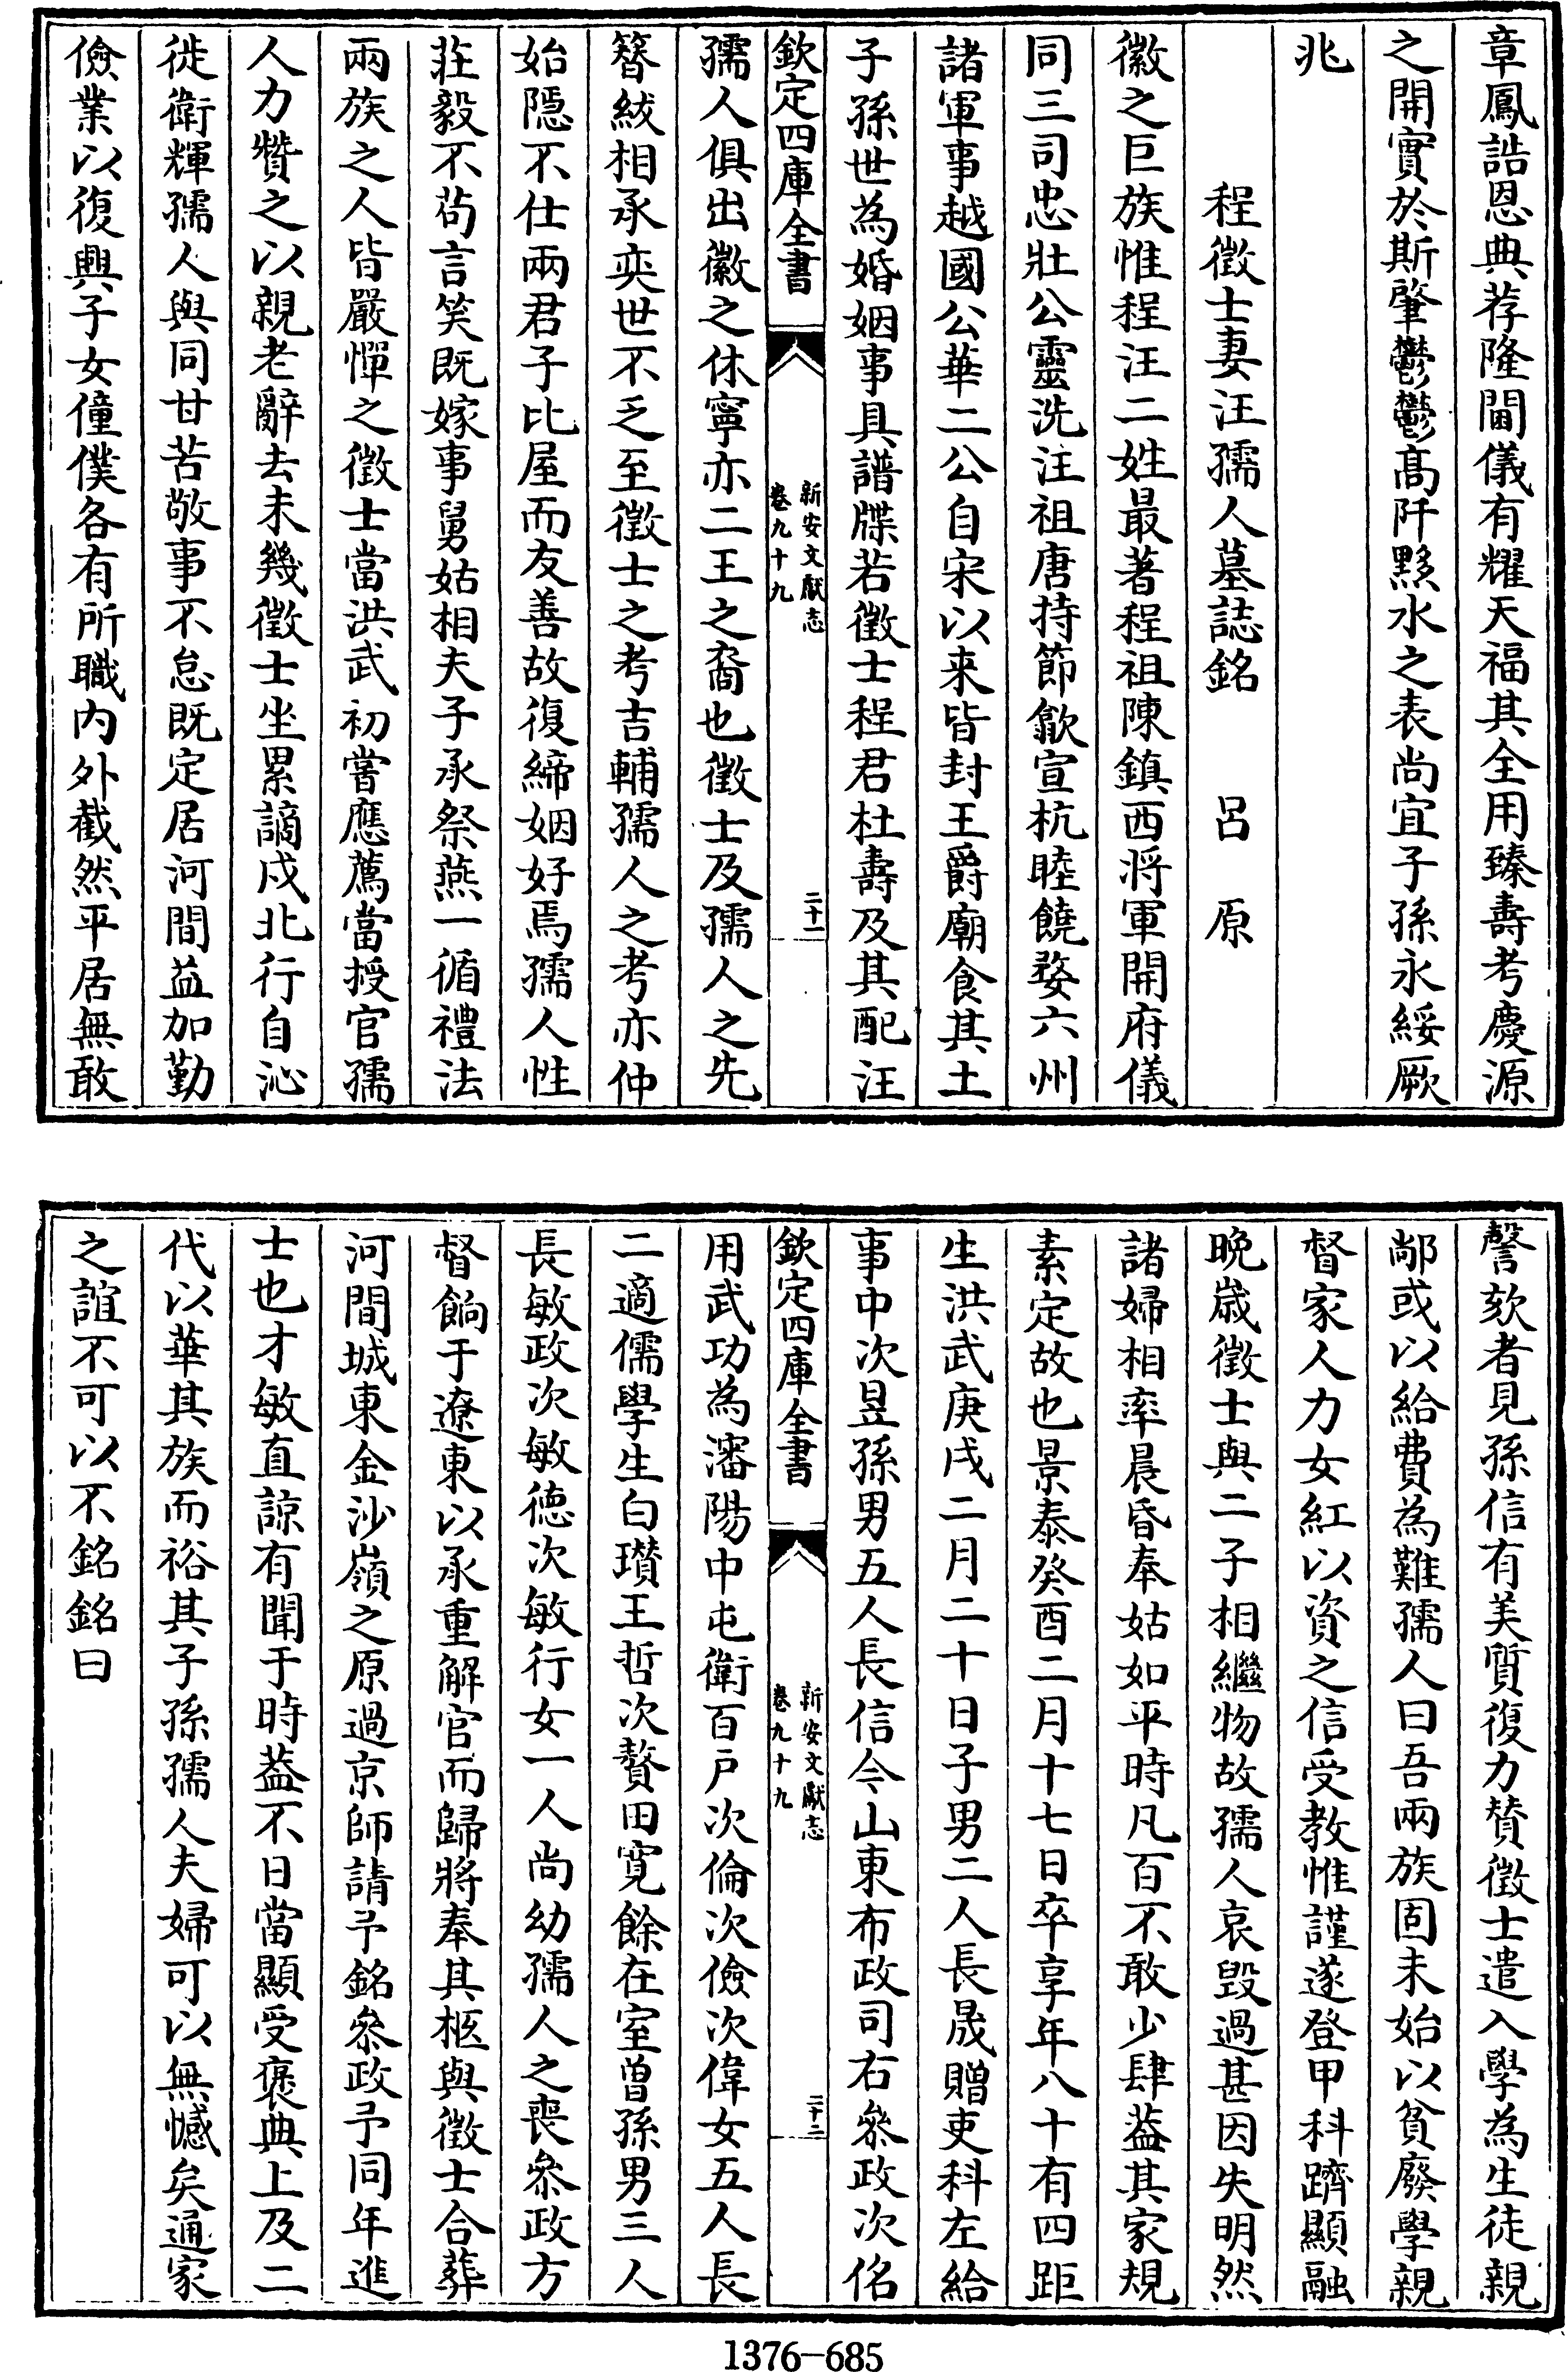 章鳳誥恩典荐隆閫儀有耀天福其全用臻壽考慶源
之開實於斯肇鬱鬱髙阡黟水之表尚宜子孫永綏厥
兆
程徵士妻汪孺人墓誌銘　呂　原
徽之巨族惟程汪二姓最著程祖陳鎮西将軍開府儀
同三司忠壯公靈洗汪祖唐持節歙宣杭睦饒婺六州
諸軍事越國公華二公自宋以来皆封王爵廟食其土
子孫世為婚姻事具譜牒若徵士程君杜壽及其配汪
欽定四庫全書
新安文獻志
卷九十九
二十一
孺人俱出徽之休寧亦二王之裔也徵士及孺人之先
簮紱相承奕世不乏至徵士之考吉輔孺人之考亦仲
始隱不仕兩君子比屋而友善故復締姻好焉孺人性
莊毅不茍言笑既嫁事舅姑相夫子承祭燕一循禮法
兩族之人皆嚴憚之徵士當洪武初嘗應薦當授官孺
人力贊之以親老辭去未幾徵士坐累謫戍北行自沁
徙衛輝孺人與同甘苦敬事不怠既定居河間益加勤
儉業以復興子女僮僕各有所職内外截然平居無敢
謦欬者見孫信有美質復力賛徵士遣入學為生徒親
鄰或以給費為難孺人曰吾兩族固未始以貧廢學親
督家人力女紅以資之信受教惟謹遂登甲科躋顯融
晩歳徵士與二子相繼物故孺人哀毁過甚因失明然
諸婦相率晨昏奉姑如平時凡百不敢少肆葢其家規
素定故也景泰癸酉二月十七日卒享年八十有四距
生洪武庚戌二月二十日子男二人長晟贈吏科左給
事中次昱孫男五人長信今山東布政司右叅政次佲
欽定四庫全書
新安文獻志
卷九十九
二十二
用武功為瀋陽中屯衛百戸次倫次儉次偉女五人長
二適儒學生白瓚王哲次贅田寛餘在室曽孫男三人
長敏政次敏徳次敏行女一人尚幼孺人之喪叅政方
督餉于遼東以承重解官而歸將奉其柩與徵士合葬
河間城東金沙嶺之原過京師請予銘叅政予同年進
士也才敏直諒有聞于時葢不日當顯受褒典上及二
代以華其族而裕其子孫孺人夫婦可以無憾矣通家
之誼不可以不銘銘曰
1376-685